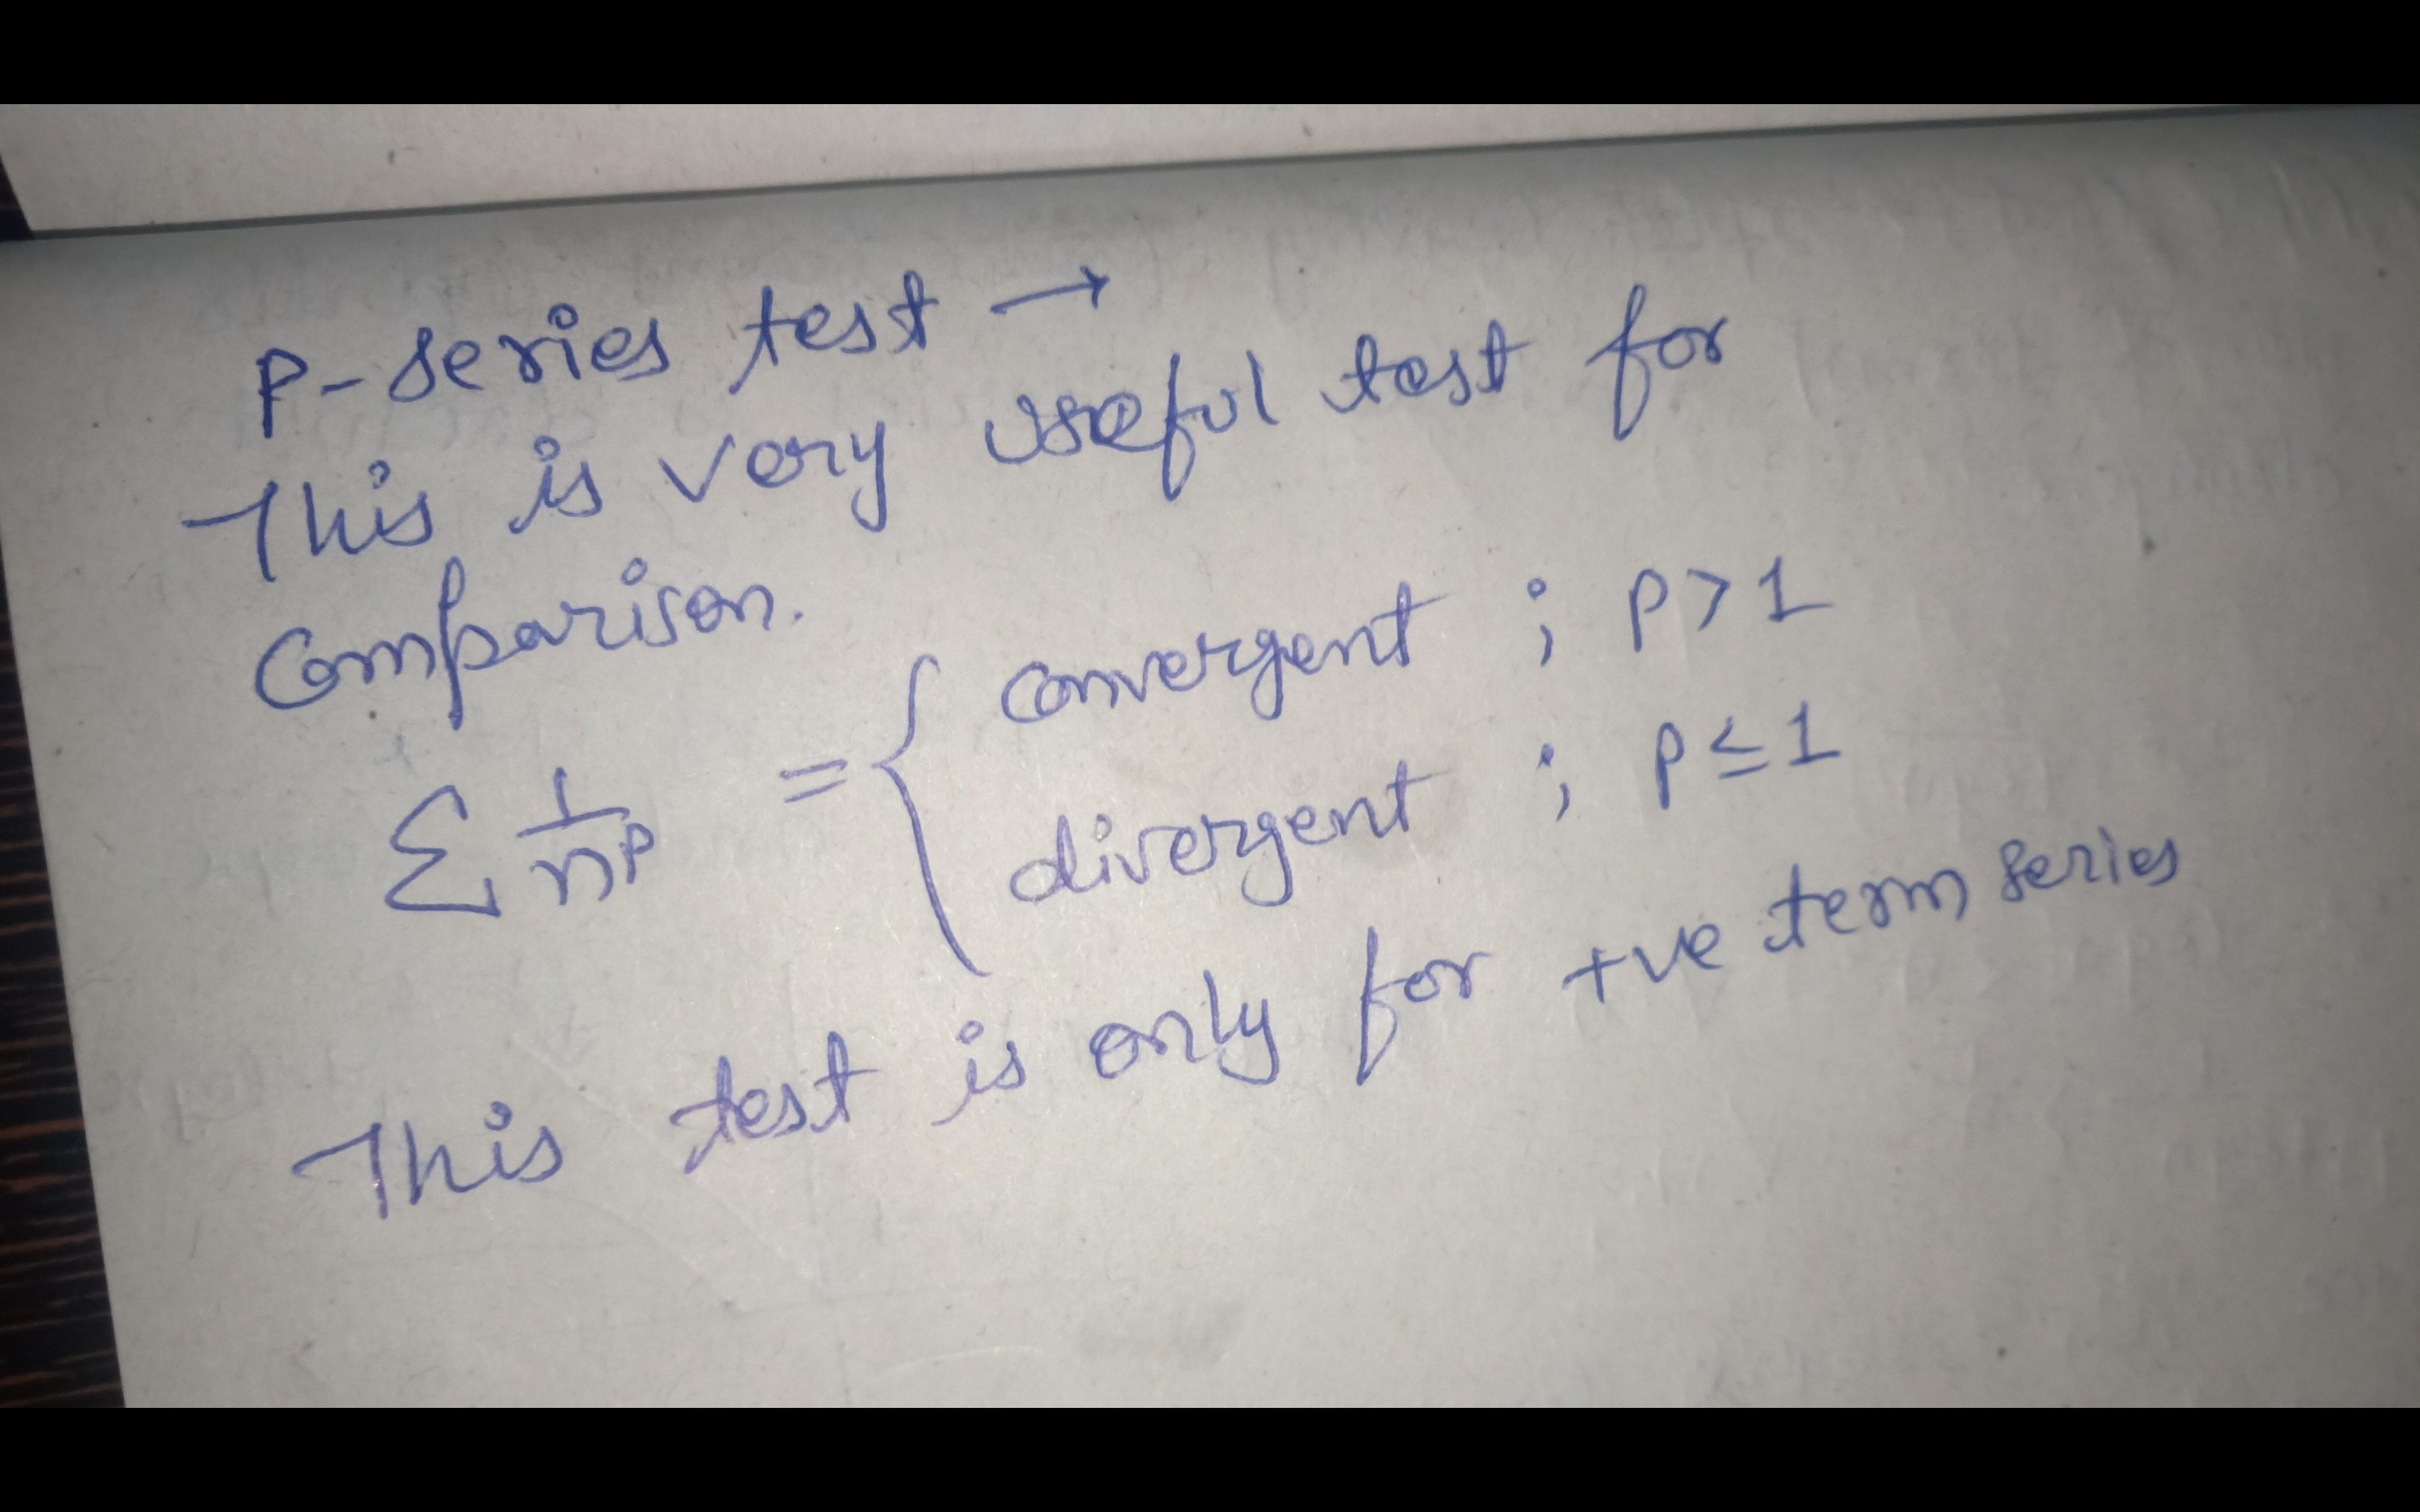 P-series test →
This is very useful test for
Comparison.
Σ 1/n^p = { convergent ; P>1
divergent ; P≤1
This test is only for +ve term series